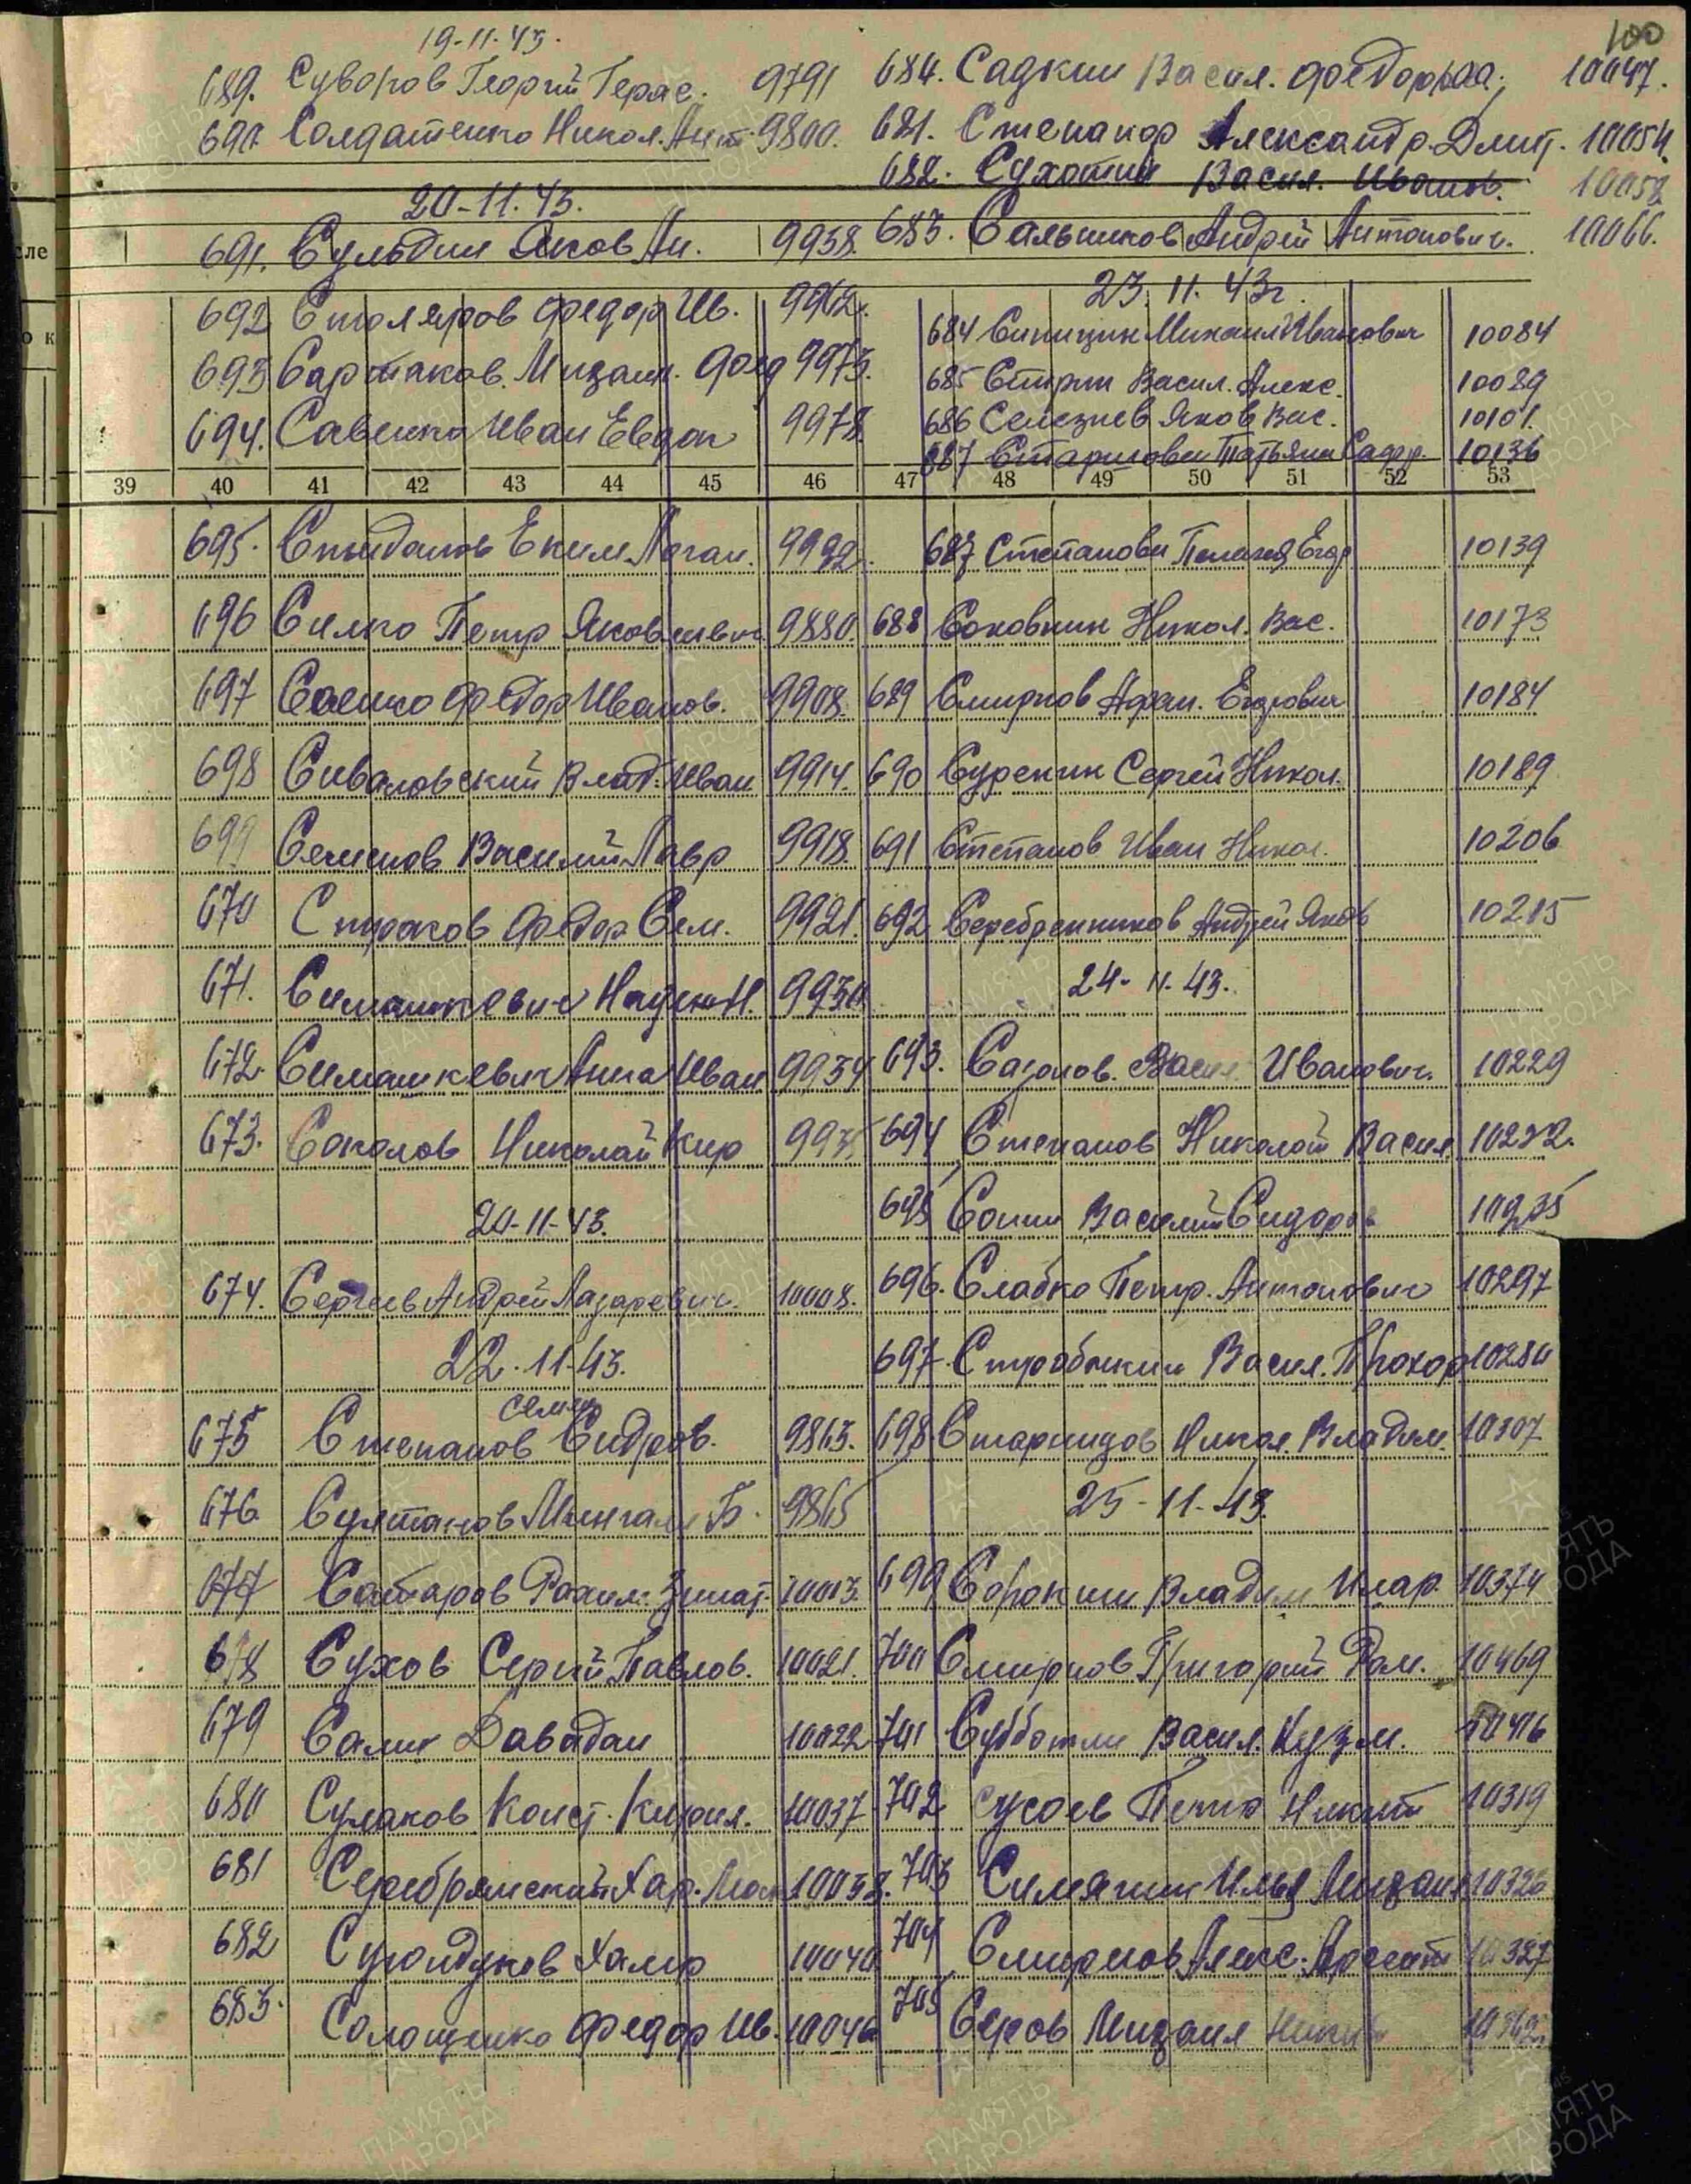 100
19-11-43.
689. Суворов Георгий Герас. 9791
690. Солдатенко Никол. Ант. 9800.
20-11.43.
691. Сульдин Яков Ан. 9938.
692 Столяров Федор Ив. 9962.
693 Сартаков Михаил. Фед 9973.
694. Савенко Иван Евдок 9978.
39 40 41 42 43 44 45 46
695. Еким 9992.
696 Силко Петр Яковлевич. 9880.
697 Саенко Федор Иванов. 9908.
698 Сиваловский Влад. Иван 9914.
699 Семенов Василий Лавр 9918.
670 Федор Сем. 9921.
671. Симашкевич Надеж Н. 9930
672. Симашкевич Анна Иван 9934
673. Соколов Николай Кир 9935
20-11-43.
674. Сергеев Андрей Лазаревич. 10008.
22.11-43.
675 Степанов Семен Сидров. 9863.
676. Султанов Мингали Б. 9865
677 Сатаров Рахим. Зинат. 10013.
678 Сухов Сергей Павлов. 10021.
679 Салих Давадан 10022
680 Сулаков Конст. Кирил. 10037
681 Серебрянский Хар. 10038.
682 Хамр 10040
683. Солощенко Федор Ив. 10046
684. Садкин Васил. Федорович. 10047.
681. Степанор Александр. Дмит. 10054.
682. Сухотин Васил. Иванов. 10058
683. Сальников Андрей Антонович. 10066.
23. 11. 43г.
684 Синицин Михаил Иванович 10084
685 Васил. Алекс. 10089
686 Селезнев Яков Вас. 10101.
687 Татьяна 10136
47 48 49 50 51 52 53
687 Степанова Пелагея Егор 10139
688 Соковнин Никол. Вас. 10173
689 Смирнов Афан. Егорович 10184
690 Суренин Сергей Никол. 10189
691 Степанов Иван Никол. 10206
692 Серебренников Андрей Яков 10215
24-11-43.
693. Сазонов. Васил. Иванович. 10229
694 Степанов Николай Васил. 10232.
695 Сонин Василий Сидоров 10235
696. Слабко Петр. Антонович 10297
697. Васил. Прохор 10280
698. Никол. Владим. 10307
25-11-43.
699 Сорокин Владим Илар. 10374
700 Смирнов Григорий Ром. 10469
701 Субботин Васил. Кузм. 10416
702 Сусоев Петр Никит 10319
703 Симягин Илья Михаил 10326
704 Смирнов Алекс. 10327
705 Серов Михаил